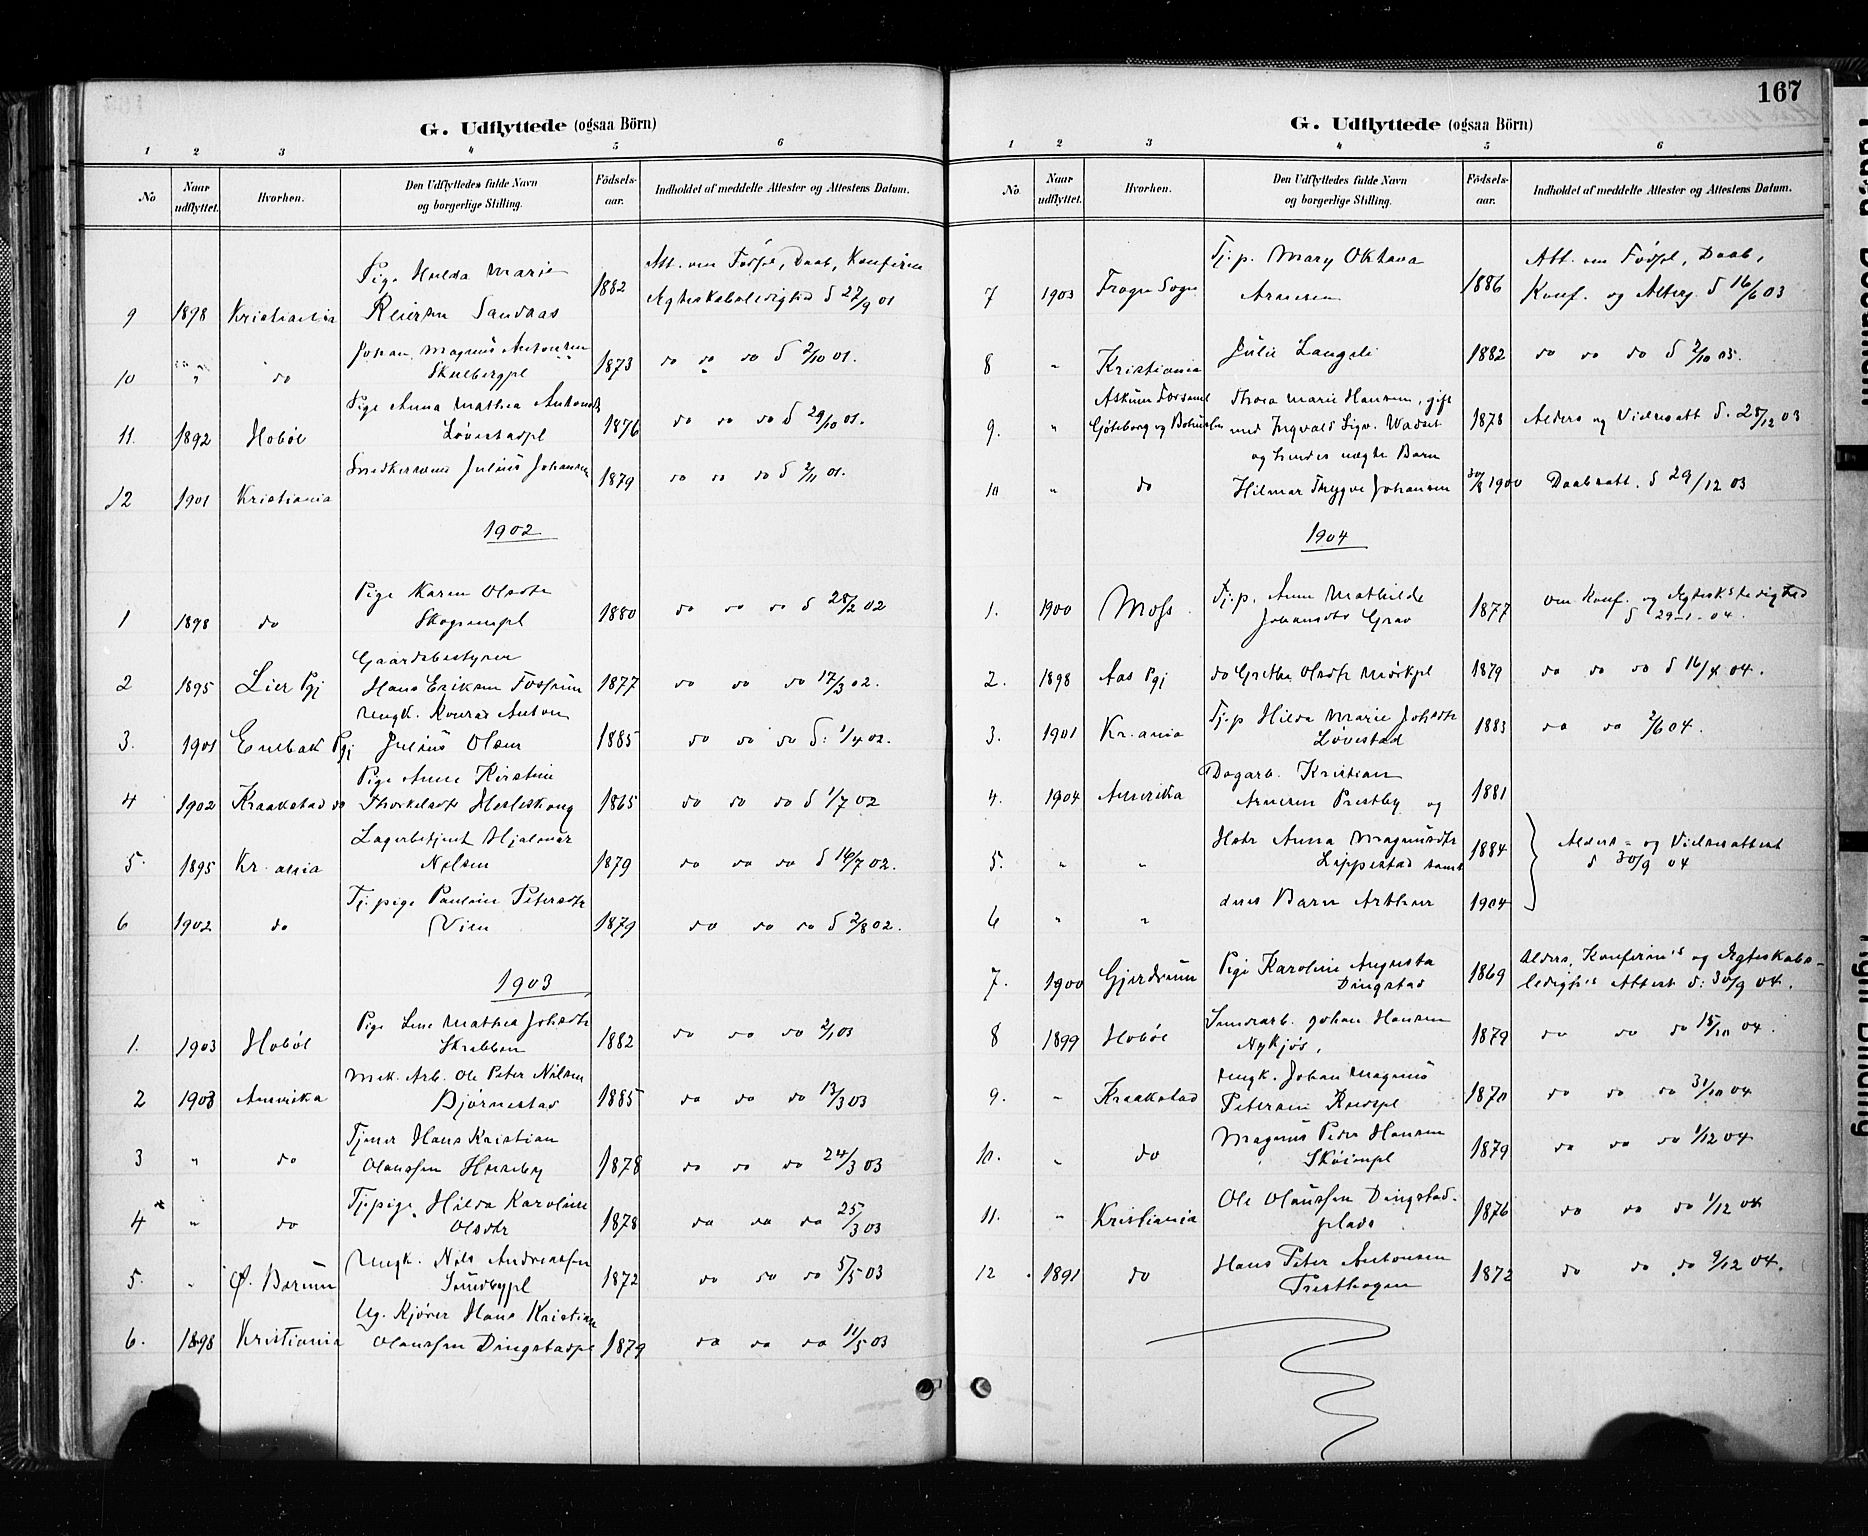 G. Udflyttede (ogsaa Börn)
1 2 3 4 5 6
No Naar udflyttet. Hvorhen. Den Udflyttedes fulde Navn og borgerlige Stilling. Födsels-aar. Indholdet af meddelte Attester og Attestens Datum.
Pige Hulda Marie Att. om Födsel, Daab, Konfirm
9 1898 Kristiania Reiersen Sandaas 1882 Ægteskabsledighed d 27/9 01
Johan Magnus Antonsen
10 " do Skulbergpl 1873 do do do d 2/10 01.
Pige Anna Mathea Antonsdtr
11. 1892 Hobøl Løvestadpl 1876 do do do d 29/10 01.
12 1901 Kristiania Snedkersvend Julius Johansen 1879 do do do d 2/11 01.
1902
Pige Karen Olsdtr
1 1898 do 1880 do do do d 28/2 02
Gaardsbestyrer
2 1895 Lier Pgj Hans Eriksen Fossum 1877 do do do 17/3 02.
Ungk. Konrad Anton
3. 1901 Enebak Pgj Julius Olsen 1885 do do do d: 1/4 02.
Pige Anne Kirstine
4 1902 Kraakstad do Thorkelsdtr 1865 do do do d 1/7 02
Lagerbetjent Hjalmar
5. 1895 Kr.ania Nilsen 1879 do do do d 16/7 02.
Tj.pige Pauline Petersdtr
6 1902 do Vien 1879 do do do d 2/8 02.
1903
Pige Line Mathea Johsdtr
1. 1903 Hobøl Skrabben 1882 do do do 2/1 03
Mek. Arb. Ole Peter Nilsen
2 1903 Amerika Bjørnestad 1885 do do do 13/3 03
Tjener Hans Kristian
3 " do Olaussen Huseby 1878 do do do 24/3 03
Tjpige Hilda Karoline
4 " do Olsdtr 1878 do do do 25/3 03
Ungk. Nils Andreassen
5. " Ø. Bærum Sundbypl 1872 do do do 5/5 03
Ug. Kjører Hans Kristian
6. 1898 Kristiania Olaussen Dingstadpl 1879 do do do 11/5 03
167
G. Udflyttede (ogsaa Börn)
1 2 3 4 5 6
No. Naar udflyttet. Hvorhen. Den Udflyttedes fulde Navn og borgerlige Stilling. Födsels-aar. Indholdet af meddelte Attester og Attestens Datum.
Tj.p. Mary Oktava Att. om Födsl, Daab,
7 1903 Frogn Sogn Arnesen 1886 Konf. og Alterg. d 16/6 03
8 " Kristiania Julie Langeli 1882 do do do d 2/10 03.
Askum Forsaml Thora Marie Hansen, gift
9. " Göteborg og Bohuslen med Ingvald Sigv. Wadset 1878 Alders og Vielsesatt d. 28/12 03
og hendes uægte Barn
10 " do Hilmar Trygve Johansen 30/8 1900 Daabsatt. d 29/12 03
1904
Tj.p. Anne Mathilde om Konf. og Ægteskbledighed
1. 1900 Moss Johansdtr Grav 1877 d 29-1-04.
2. 1898 Aas Pgj do Grethe Olsdtr Mörkpl 1879 do do do d 16/4 04.
Tj.p Hilda Marie Johsdtr
3. 1901 Kr.ania Løvestad 1883 do do 2/6 04.
Dagarb. Kristian
4. 1904 Amerika Arnesen Prestby og 1881
Hstr Anna Magnusdtr Alders- og Vielsesattest
5. " " Lippestad samt 1884 d 30/9 04
6 " " deres Barn Arthur 1904
Pige Karoline Augusta Alders, Konfirm's og Ægteskabs-
7. 1900 Gjerdrum Dingstad 1869 ledighs Attest d: 30/9 04.
Smedarb. Johan Hansen
8 1899 Hobøl Nykjøs, 1879 do do do 15/10 04.
Ungk. Johan Magnus
9. " Kraakstad Petersen 1870 do do do 31/10 04
Magnus Peder Hansen
10. " do Sköienpl 1879 do do do 1/12 04
Ole Olaussen Dingstad-
11. " Kristiania plads 1876 do do do 1/12 04
Hans Peter Antonsen
12. 1891 do Presthagen 1872 do do do 9/12 04.